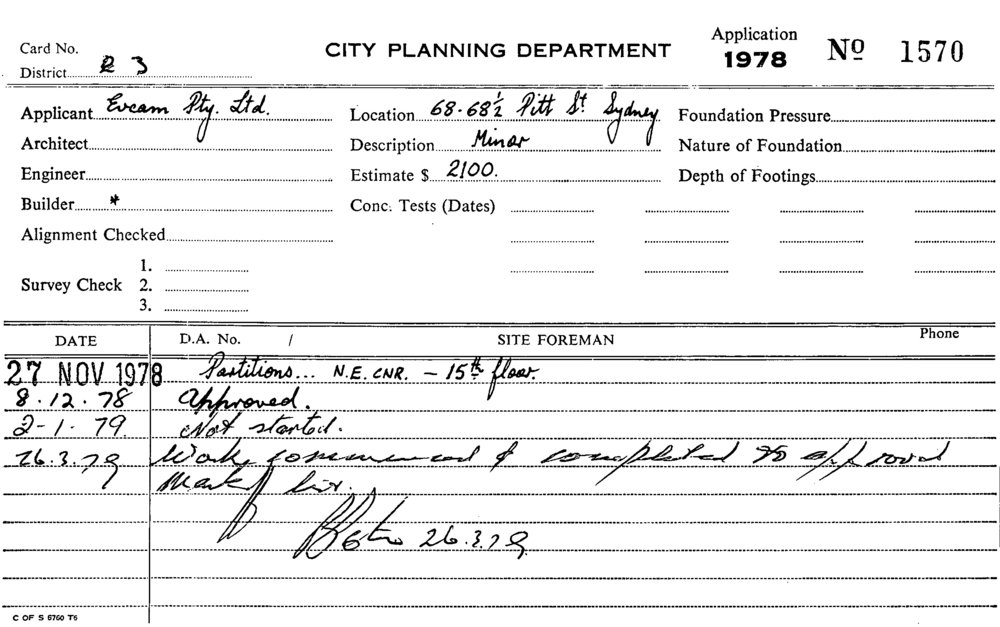 Card No. CITY PLANNING DEPARTMENT Application 1978 Nº 1570
District 3
Applicant Evcam Pty. Ltd. Location 68-68½ Pitt St. Sydney Foundation Pressure
Architect Description Minor Nature of Foundation
Engineer Estimate $ 2100. Depth of Footings
Builder * Conc. Tests (Dates)
Alignment Checked
1.
Survey Check 2.
3.
DATE D.A. No. / SITE FOREMAN Phone
27 NOV 1978 Partitions... N.E. CNR. - 15th floor.
8.12.78 Approved.
2-1.79. Not started.
26.3.79 Work commenced & completed to approval
Mark
26.3.79
C OF S 6760 T6